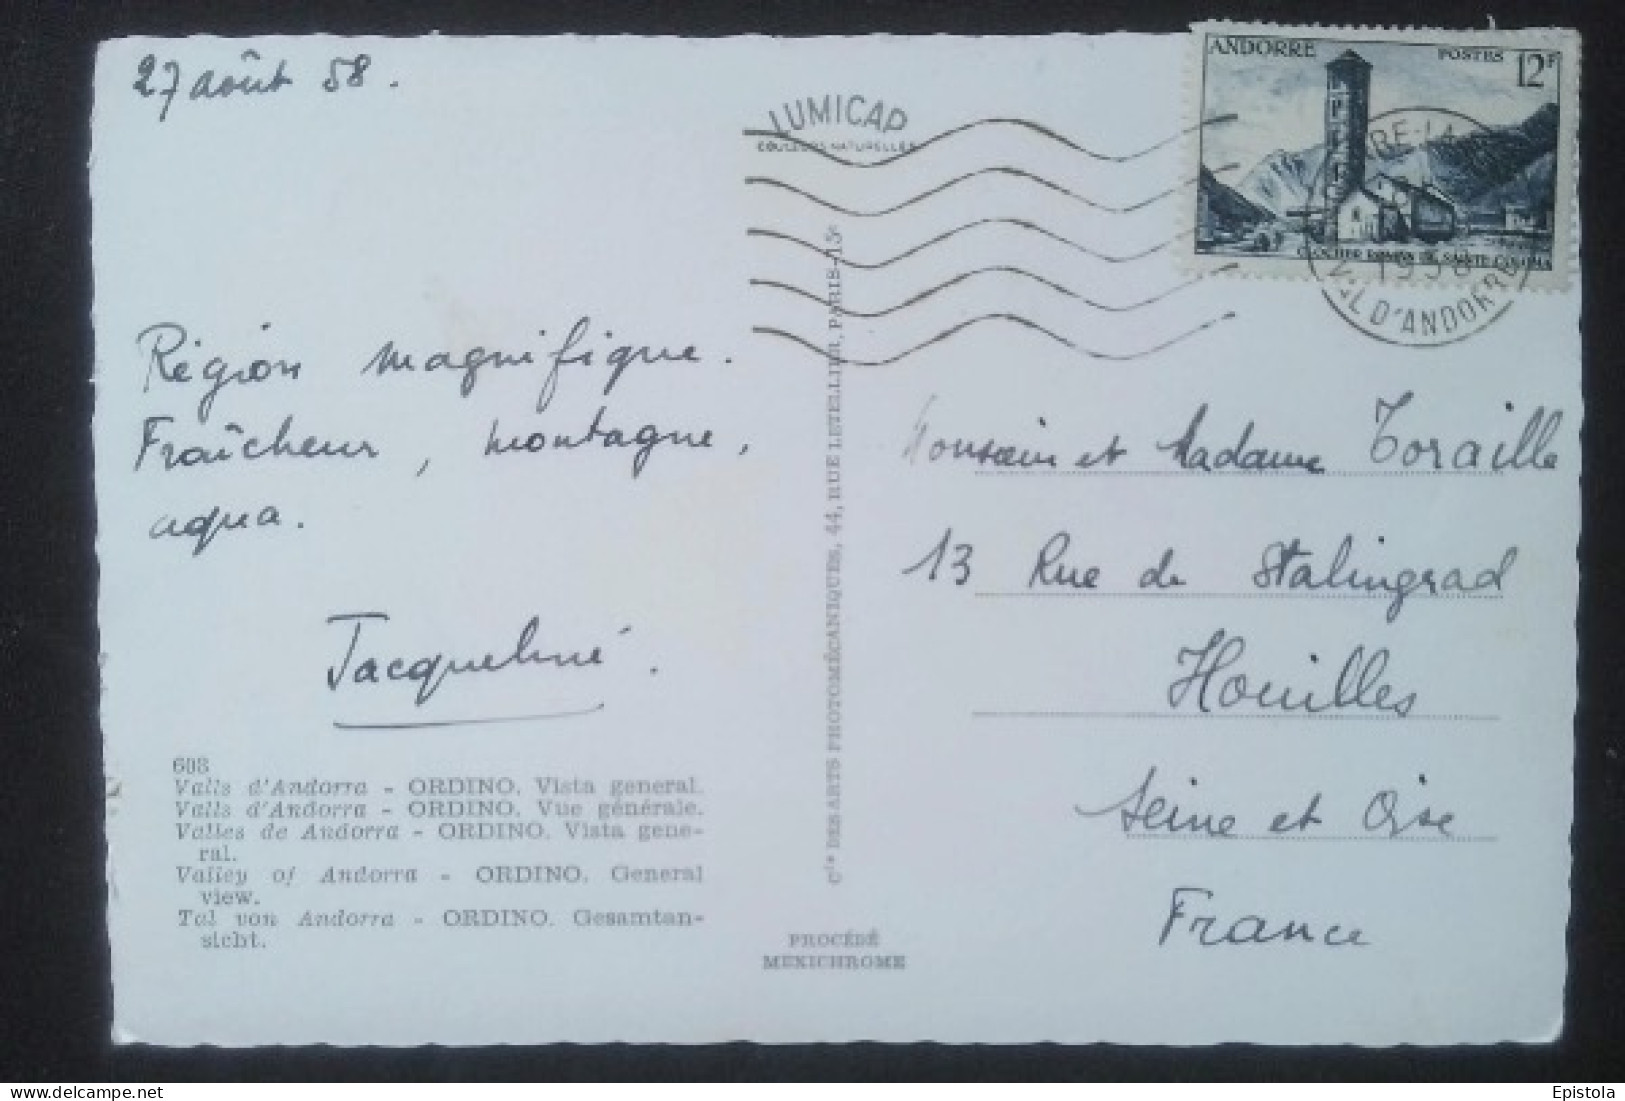 27 août 58.
LUMICAP
COULEURS NATURELLES
ANDORRE
POSTES
12F
CLOCHER ROMAN DE SAINTE COLOMA
1958
VAL D'ANDORRE
Région magnifique.
Fraîcheur, montagne,
aqua.
Jacqueline.
608
Valls d'Andorra - ORDINO. Vista general.
Valls d'Andorra - ORDINO. Vue générale.
Valles de Andorra - ORDINO. Vista gene-
ral.
Valley of Andorra - ORDINO. General
view.
Tal von Andorra - ORDINO. Gesamtan-
sicht.
Cie DES ARTS PHOTOMÉCANIQUES, 44, RUE LETELLIER, PARIS-15e
PROCÉDÉ
MEXICHROME
Monsieur et Madame Toraille
13 Rue de Stalingrad
Houilles
Seine et Oise
France
Epistola